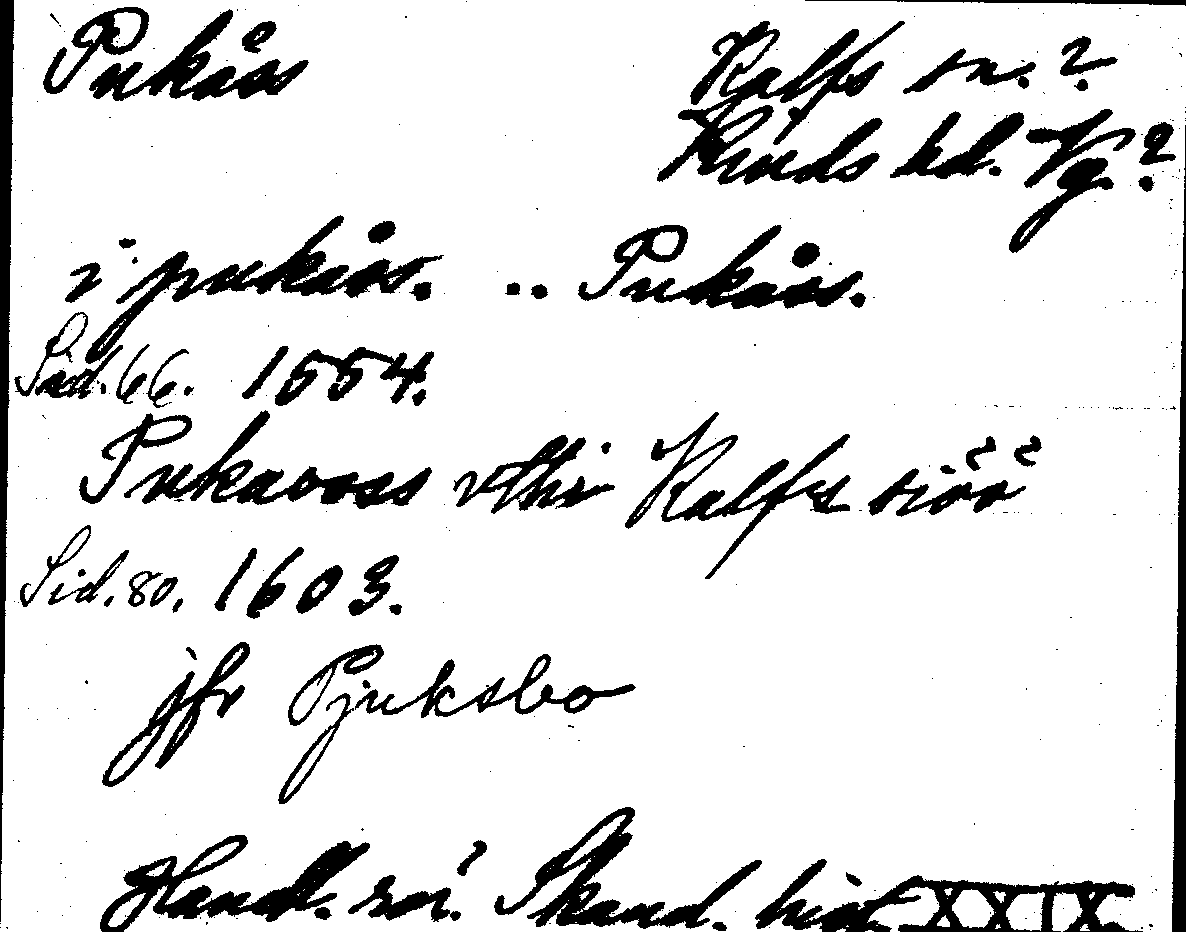 Pukås
Kalfs sn.?
Kinds hd. Vg.?
i pukås. .. Pukås.
Sid. 66. 1554.
Pukaooss vthi Kalfs siöö
Sid. 80. 1603.
jfr Pjuksbo
Handl. rör. Skand. hist XXIX.